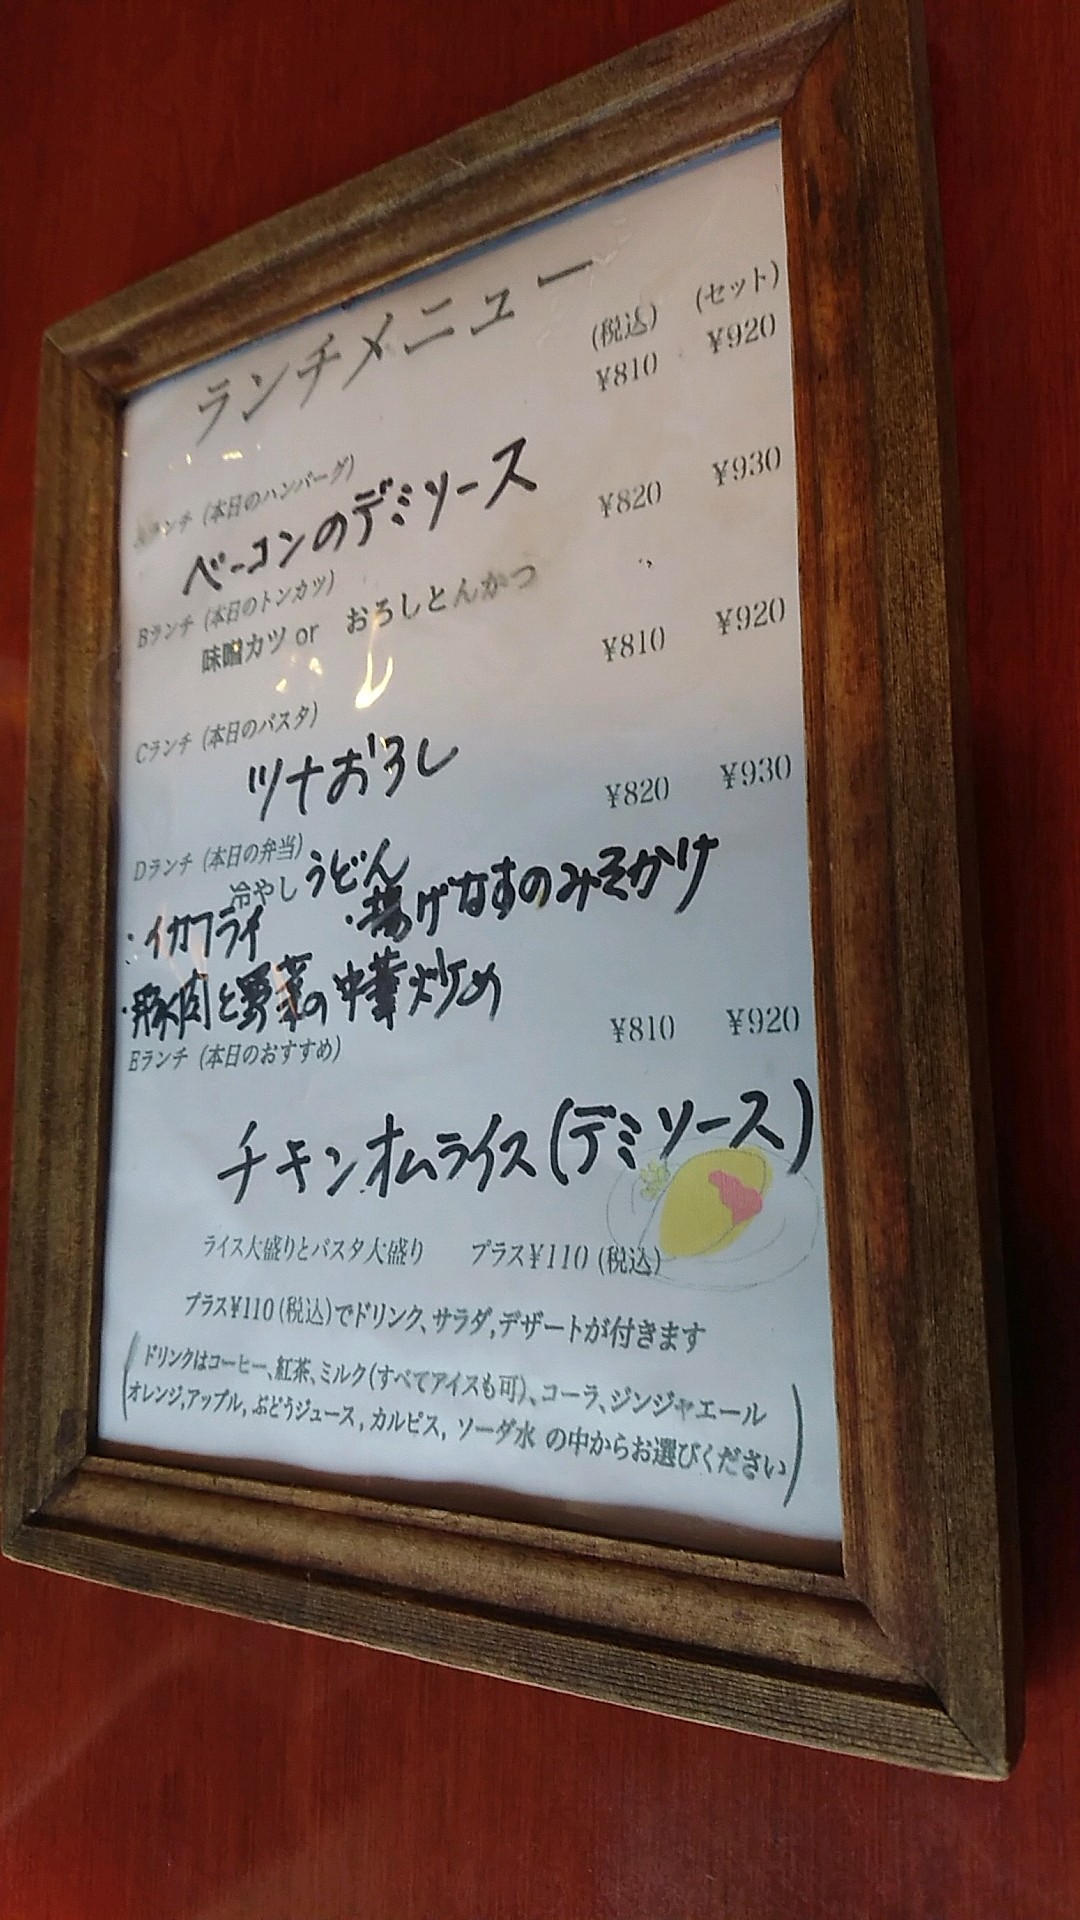 ランチメニュー
(税込) (セット)
Aランチ (本日のハンバーグ) ¥810 ¥920
ベーコンのデミソース
Bランチ (本日のトンカツ) ¥820 ¥930
味噌カツ or おろしとんかつ
Cランチ (本日のパスタ) ¥810 ¥920
ツナおろし
Dランチ (本日の弁当) ¥820 ¥930
冷やし うどん
・イカフライ ・揚げなすのみそかけ
・豚肉と野菜の中華炒め
Eランチ (本日のおすすめ) ¥810 ¥920
チキンオムライス(デミソース)
ライス大盛りとパスタ大盛り プラス¥110 (税込)
プラス¥110 (税込)でドリンク、サラダ,デザートが付きます
(ドリンクはコーヒー、紅茶、ミルク(すべてアイスも可)、コーラ、ジンジャエール
オレンジ,アップル, ぶどうジュース, カルピス, ソーダ水 の中からお選びください)